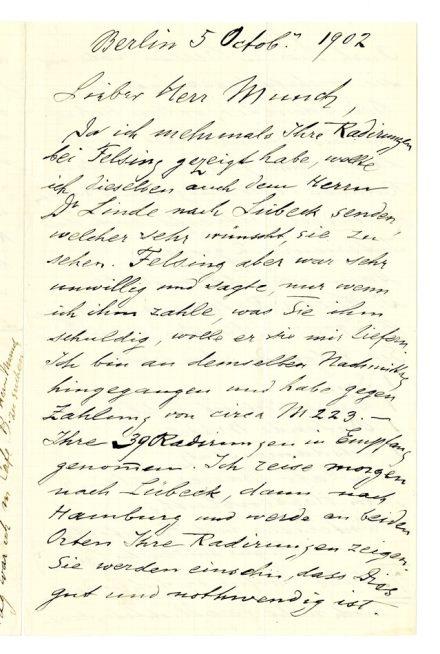 Berlin 5 Octob.r 1902
Lieber Herr Munch,
Da ich mehrmals Ihre Radirungen
bei Felsing gezeigt habe, wollte
ich dieselben auch dem Herrn
Dr Linde nach Lübeck senden,
welcher sehr wünscht, sie zu
sehen. Felsing aber war sehr
unwillig und sagte, nur wenn
ich ihm zahle, was Sie ihm
schuldig, wolle er sie mir liefern
Ich bin an demselben Nachmittag
hingegangen und habe gegen
Zahlung von circa M 223.—
Ihre 39 Radirungen in Empfang
genommen. Ich reise morgen
nach Lübeck, dann nach
Hamburg und werde an beiden
Orten Ihre Radirungen zeigen.
Sie werden einsehn, dass Dies
gut und nothwendig ist.